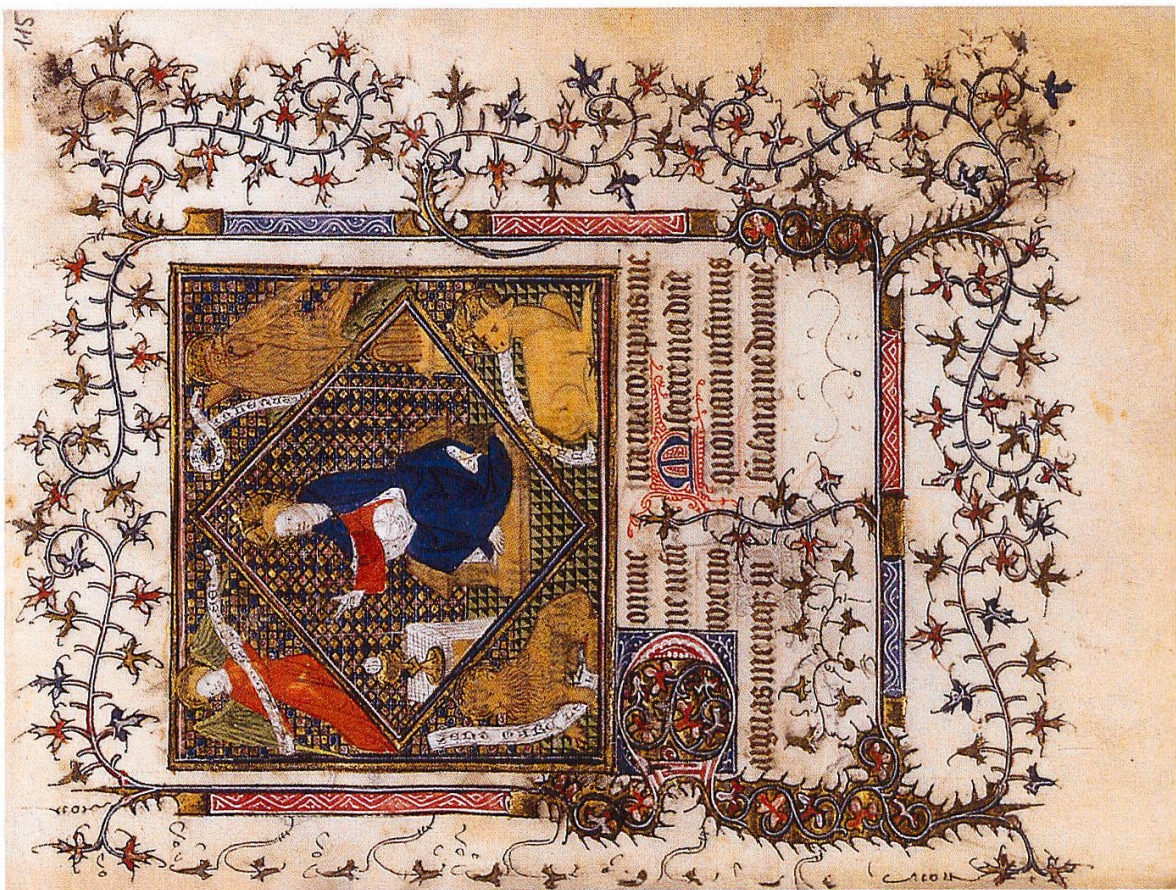 115
Domine
ne in furo
re tuo
arguas me neqz in
ira tua corripias me
Miserere mei dñe
quoniam infirmus
sũ sana me domine